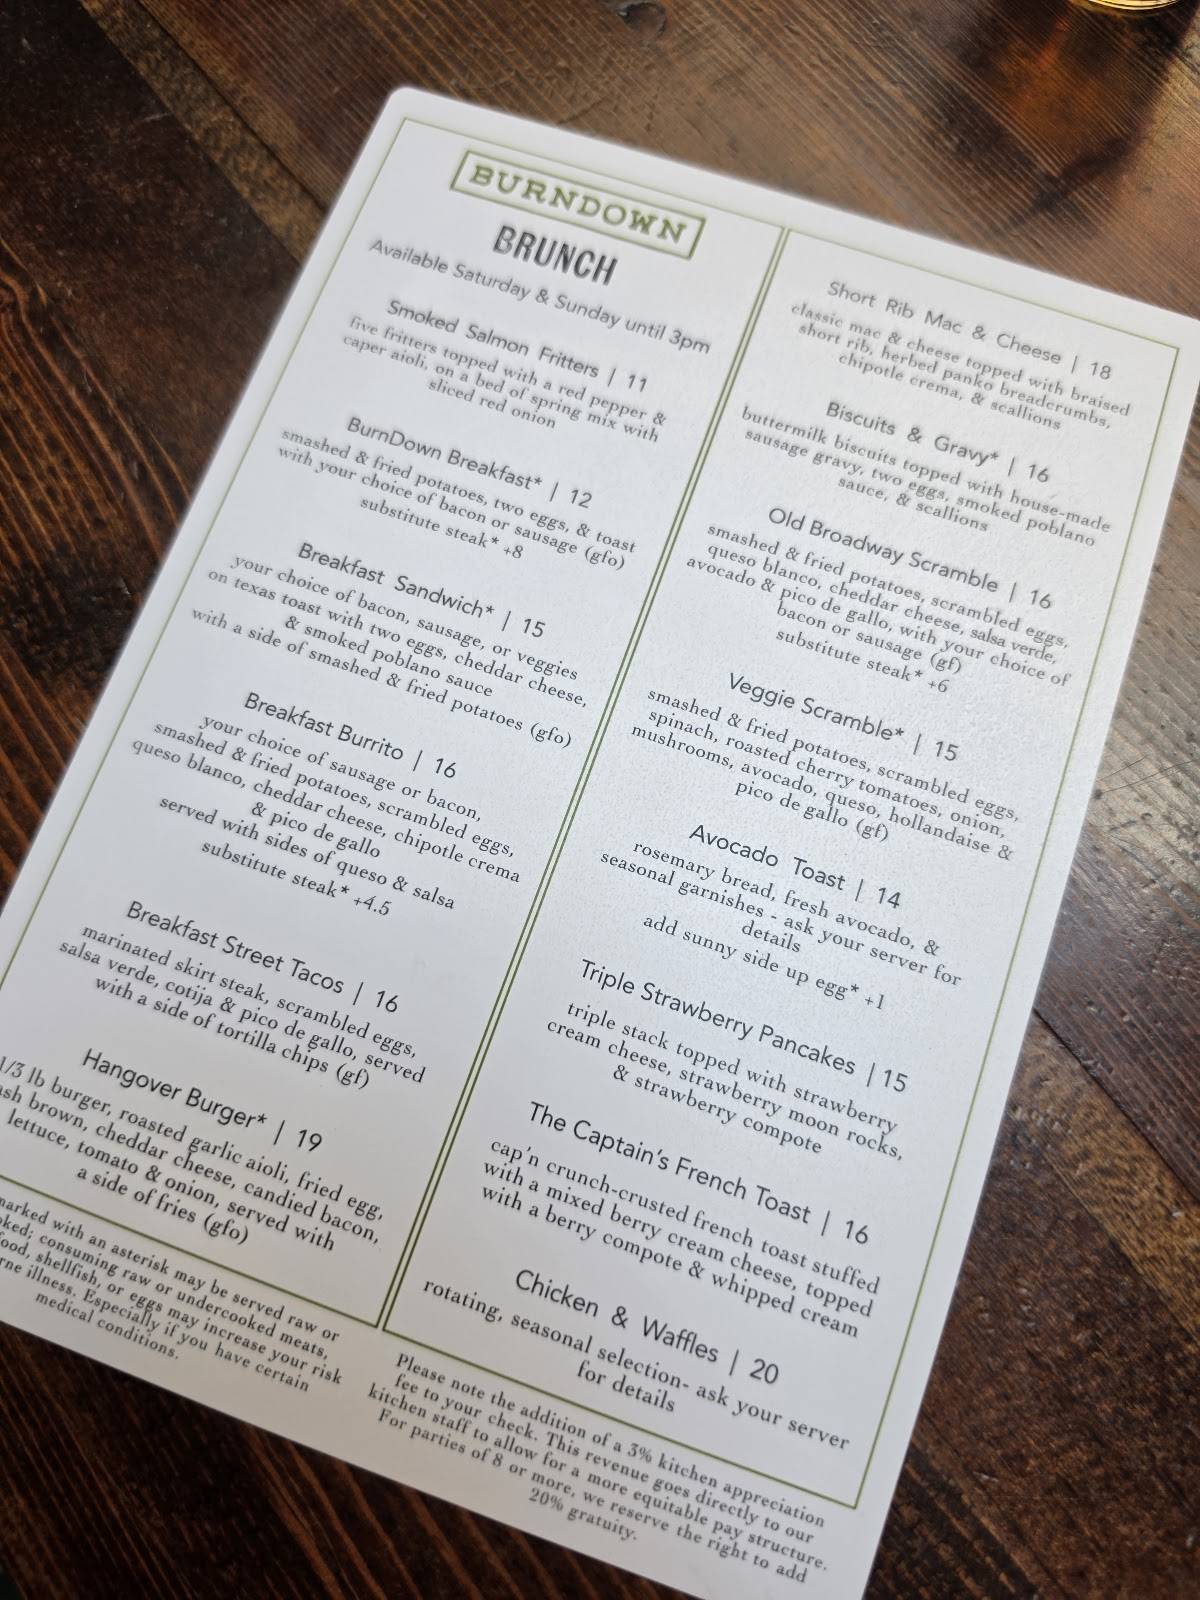 BURNDOWN
BRUNCH
Available Saturday & Sunday until 3pm
Smoked Salmon Fritters | 11
five fritters topped with a red pepper &
caper aioli, on a bed of spring mix with
sliced red onion
BurnDown Breakfast* | 12
smashed & fried potatoes, two eggs, & toast
with your choice of bacon or sausage (gfo)
substitute steak* +8
Breakfast Sandwich* | 15
your choice of bacon, sausage, or veggies
on texas toast with two eggs, cheddar cheese,
& smoked poblano sauce
with a side of smashed & fried potatoes (gfo)
Breakfast Burrito | 16
your choice of sausage or bacon,
smashed & fried potatoes, scrambled eggs,
queso blanco, cheddar cheese, chipotle crema
& pico de gallo
served with sides of queso & salsa
substitute steak* +4.5
Breakfast Street Tacos | 16
marinated skirt steak, scrambled eggs,
salsa verde, cotija & pico de gallo, served
with a side of tortilla chips (gf)
Hangover Burger* | 19
1/3 lb burger, roasted garlic aioli, fried egg,
brown, cheddar cheese, candied bacon,
lettuce, tomato & onion, served with
a side of fries (gfo)
marked with an asterisk may be served raw or
consuming raw or undercooked meats,
shellfish, or eggs may increase your risk
illness. Especially if you have certain
medical conditions.
Short Rib Mac & Cheese | 18
classic mac & cheese topped with braised
short rib, herbed panko breadcrumbs,
chipotle crema, & scallions
Biscuits & Gravy* | 16
buttermilk biscuits topped with house-made
sausage gravy, two eggs, smoked poblano
sauce, & scallions
Old Broadway Scramble | 16
smashed & fried potatoes, scrambled eggs,
queso blanco, cheddar cheese, salsa verde,
avocado & pico de gallo, with your choice of
bacon or sausage (gf)
substitute steak* +6
Veggie Scramble* | 15
smashed & fried potatoes, scrambled eggs,
spinach, roasted cherry tomatoes, onion,
mushrooms, avocado, queso, hollandaise &
pico de gallo (gf)
Avocado Toast | 14
rosemary bread, fresh avocado, &
seasonal garnishes - ask your server for
details
add sunny side up egg* +1
Triple Strawberry Pancakes |15
triple stack topped with strawberry
cream cheese, strawberry moon rocks,
& strawberry compote
The Captain's French Toast | 16
cap'n crunch-crusted french toast stuffed
with a mixed berry cream cheese, topped
with a berry compote & whipped cream
Chicken & Waffles | 20
rotating, seasonal selection- ask your server
for details
Please note the addition of a 3% kitchen appreciation
fee to your check. This revenue goes directly to our
kitchen staff to allow for a more equitable pay structure.
For parties of 8 or more, we reserve the right to add
20% gratuity.